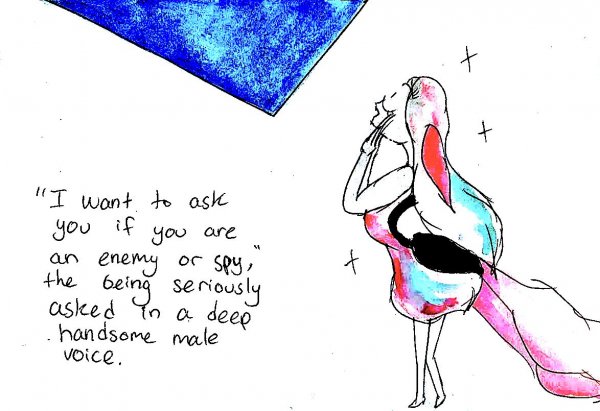 "I want to ask
you if you are
an enemy or spy,"
the being seriously
asked in a deep
handsome male
voice.